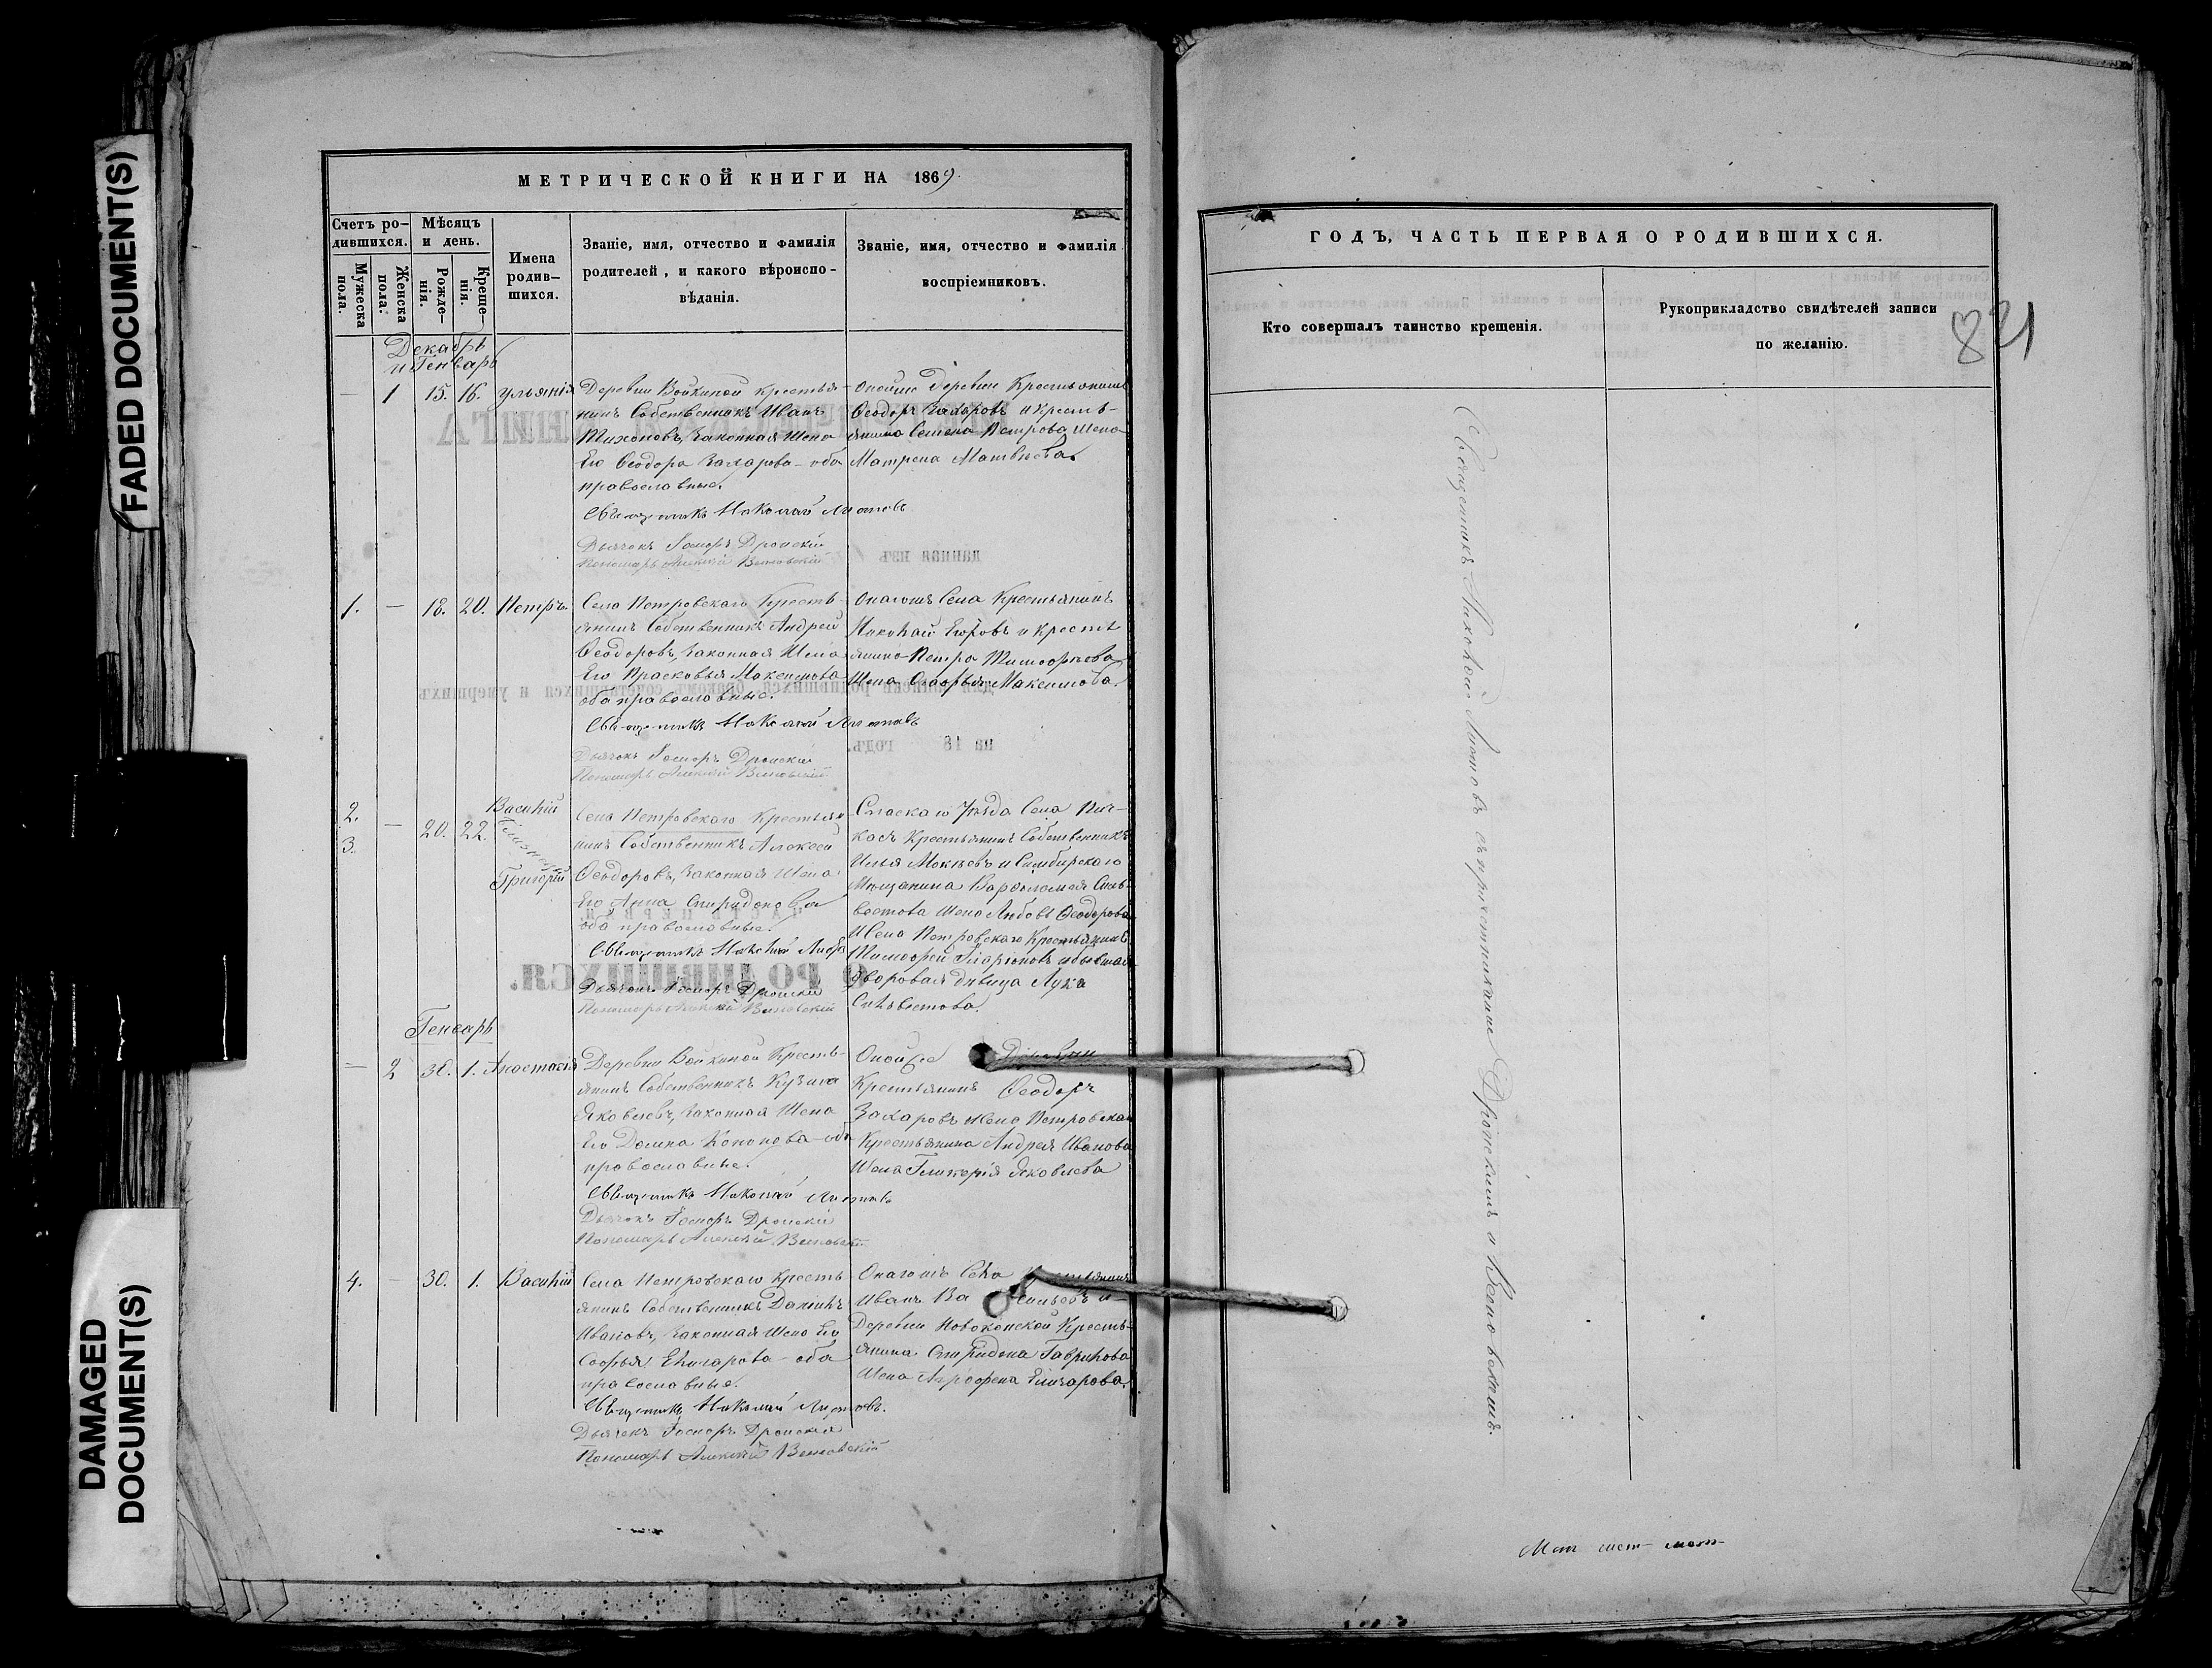 FADED DOCUMENT(S)
DAMAGED DOCUMENT(S)
МЕТРИЧЕСКОЙ КНИГИ НА 1869.
Счетъ ро-
дившихся.
Мужеска
пола.
Женска
пола.
Мѣсяцъ
и день.
Рожде-
нія.
Креще-
нія.
Имена
родив-
шихся.
Званіе, имя, отчество и фамилія
родителей, и какого вѣроиспо-
вѣданія.
Званіе, имя, отчество и фамилія
воспріемниковъ.
Декабрь
и Генварь
— 1 15. 16. Ульянія
Деревни Войкиной крестья-
нинъ Собственникъ Иванъ
Тихоновъ, законная жена
Его Ѳеодора Захарова – оба
православные.
Священникъ Николай Листовъ
Дьячокъ Дронскій
Пономарь Алексѣй
Онойже деревни Крестьянинъ
Ѳеодоръ Захаровъ и кресть-
янина Семена Петрова жена
Матрена Матвѣева.
1. — 18. 20. Петръ.
Села Петровскаго Кресть-
янинъ Собственникъ Андрей
Ѳеодоровъ, законная жена
Его Прасковья Максимова
оба православные.
Священникъ Николай Листовъ
Дьячокъ Дронскій
Пономарь Алексѣй
Онагожъ Села Крестьянинъ
Николай Егоровъ и кресть
янина Петра Тимоѳѣева
жена Максимова.
2.
3.
— 20. 22.
Василій
Григорій
Села Петровскаго Крестьян
инъ Собственникъ Алексей
Ѳеодоровъ, законная жена
Его Анна Спиридонова
оба православные.
Священникъ Николай
Дьячокъ Дронскій
Пономарь Алексѣй
Спаскаго Уѣзда Села
Крестьянинъ Собственникъ
Илья и Симбирскаго
Мѣщанина Варѳоломея Силь-
вестрова жена Любовь Ѳеодорова
Села Петровскаго Крестьянинъ
Тимоѳей и бывшая
дворовая дѣвица
Генварь
— 2 30. 1. Анастасія
Деревни Войкиной Кресть-
янинъ Собственникъ Кузьма
Яковлевъ, законная жена
Его Домна Кононова – оба
православные.
Священникъ Николай Листовъ
Дьячокъ Дронскій
Пономарь Алексѣй
Онойже Деревни
Крестьянинъ Ѳеодоръ
Захаровъ Села Петровска
Крестьянина Андрея Иванова
жена Гликерія Яковлева
4. — 30. 1. Василій
Села Петровскаго Кресть
янинъ Собственникъ Данiилъ
Ивановъ, законная жена Его
Софья Елизарова – оба
православные.
Священникъ Николай Листовъ.
Дьячокъ Дронскій
Пономарь Алексѣй
Онагожъ Села Крестьянинъ
Иванъ Васильевъ и
Деревни Кресть-
янина Спиридона Гаврилова
жена Агрофена Елизарова.
ГОДЪ, ЧАСТЬ ПЕРВАЯ О РОДИВШИХСЯ.
Кто совершалъ таинство крещенія.
Рукоприкладство свидѣтелей записи
по желанію.
821
Священникъ Николай Листовъ съ причетниками Дронскимъ и